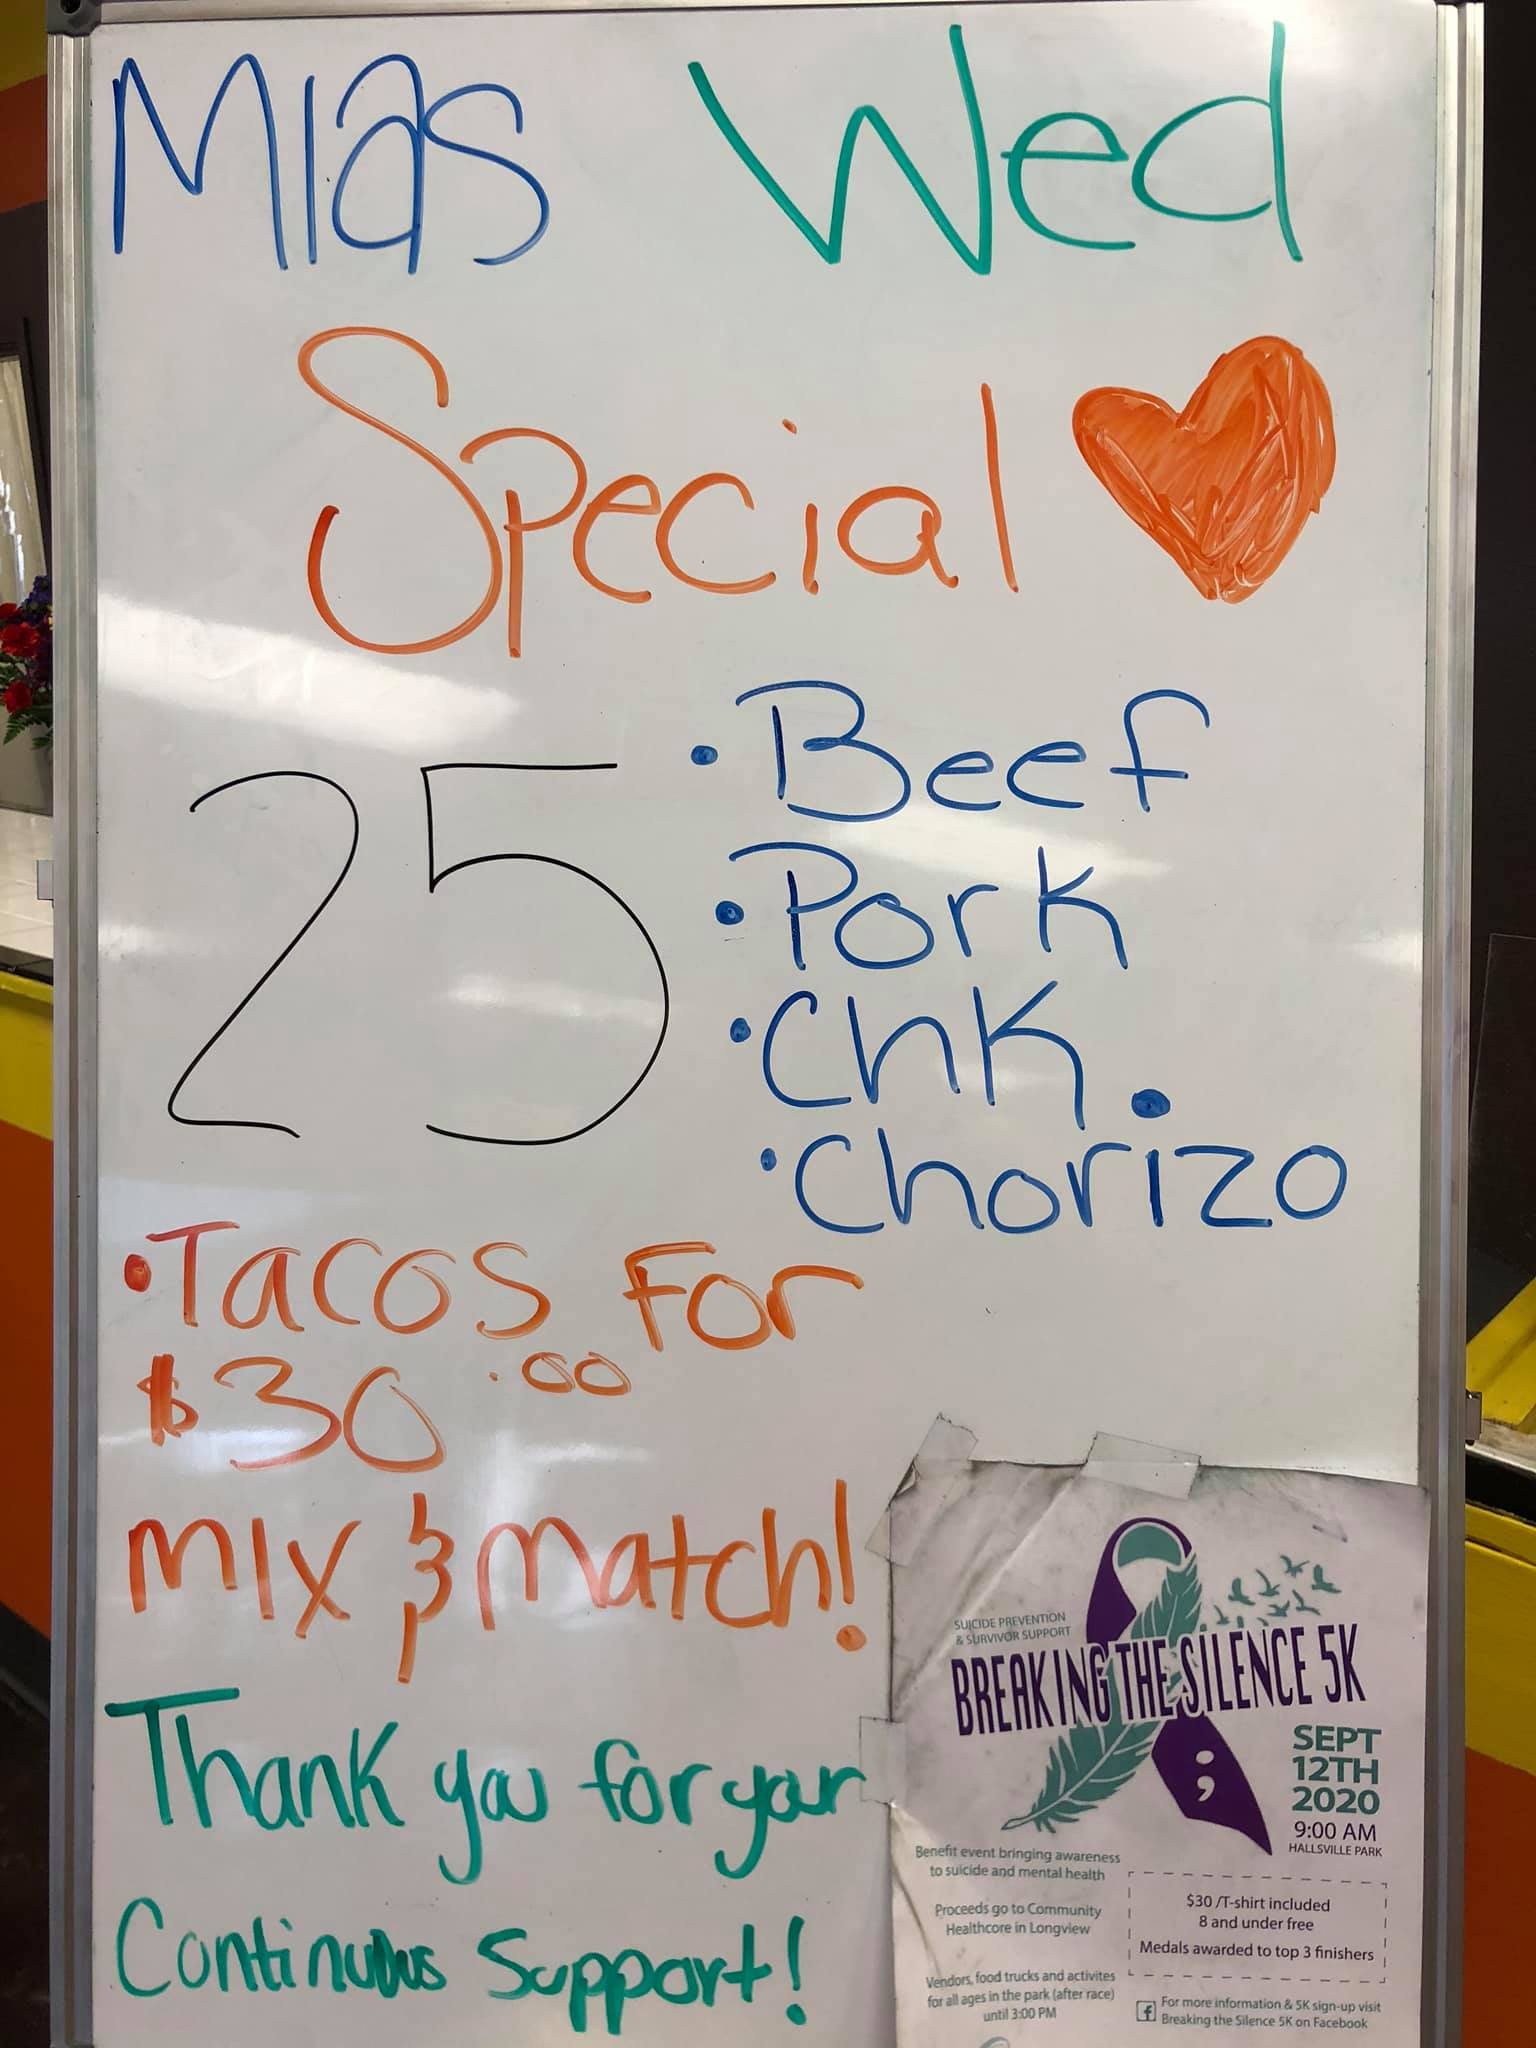 Mias Wed
Special
25
• Beef
• Pork
• Chk.
• Chorizo
• Tacos For
$30.00
Mix & Match!
Thank you for your
Continuous Support!
SUICIDE PREVENTION
& SURVIVOR SUPPORT
BREAKING THE SILENCE 5K
SEPT
12TH
2020
9:00 AM
HALLSVILLE PARK
;
Benefit event bringing awareness
to suicide and mental health
Proceeds go to Community
Healthcore in Longview
Vendors, food trucks and activites
for all ages in the park (after race)
until 3:00 PM
$30 /T-shirt included
8 and under free
Medals awarded to top 3 finishers
f For more information & 5K sign-up visit
Breaking the Silence 5K on Facebook